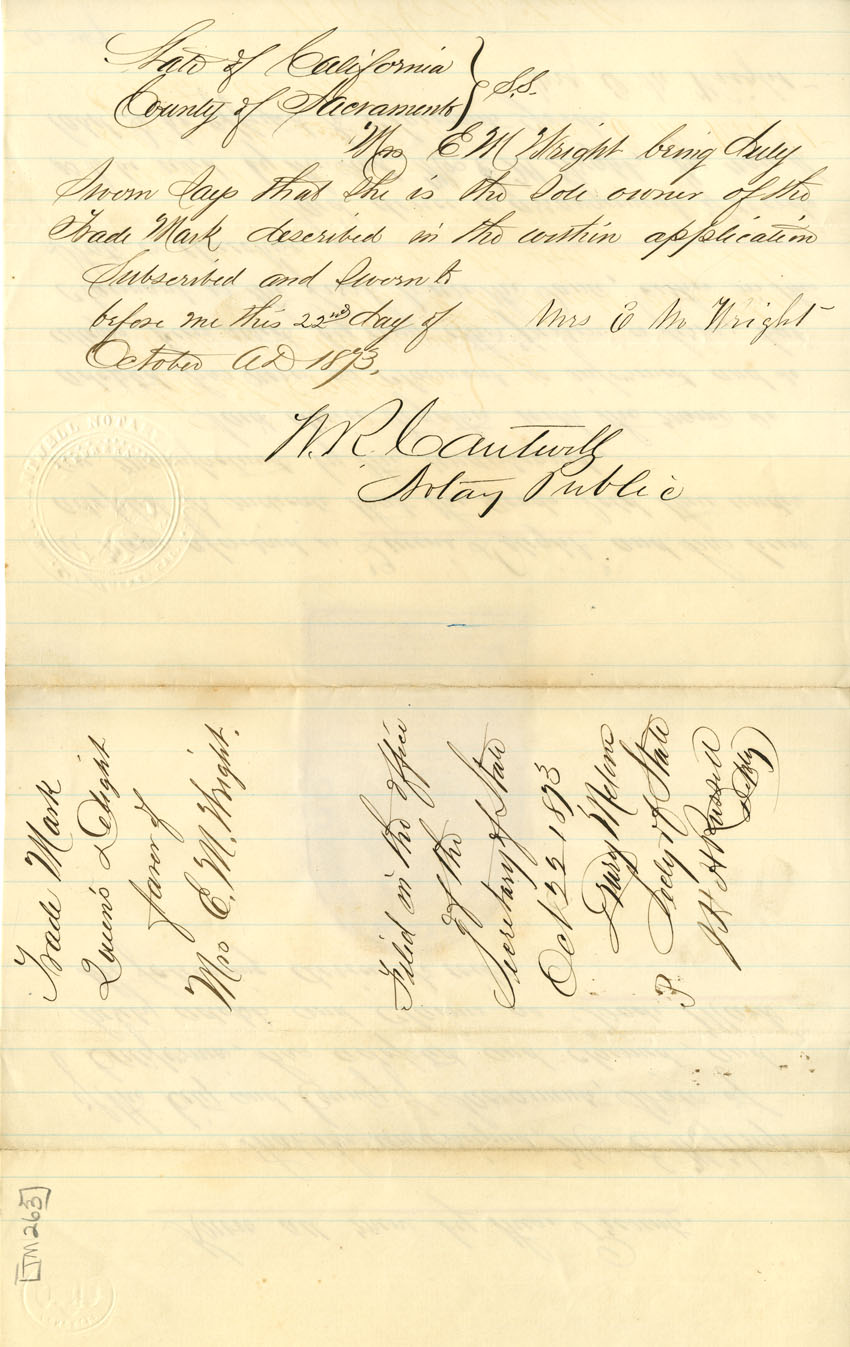 State of California
County of Sacramento } S.S.
Mrs E M Wright being duly
Sworn Says that She is the Sole owner of the
Trade Mark described in the within application
Subscribed and Sworn to
before me this 22nd day of
October AD 1873.
Mrs E M Wright
W.R. Cantwell
Notary Public
Trade Mark
Queen's Delight
favor of
Mrs E. M. Wright.
Filed in the office
of the
Secretary of State
Oct 22 1873
Drury Melone
Secty of State
Deputy
TM 263